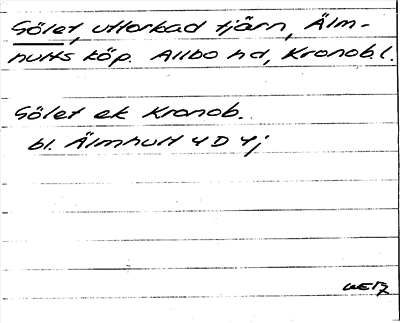 Gölet, uttorkad tjärn, Älm-
hults köp. Allbo hd, Kronob. l.
Gölet ek Kronob.
bl. Älmhult 4 D 4j